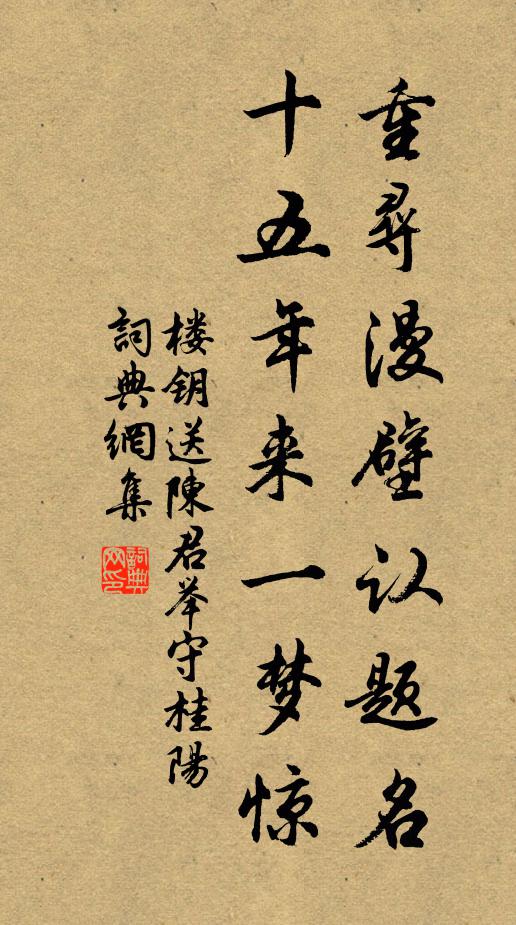 重尋漫壁认题名
十五年来一梦惊
楼钥送陳君举守桂陽
詞典網集
詞典网印